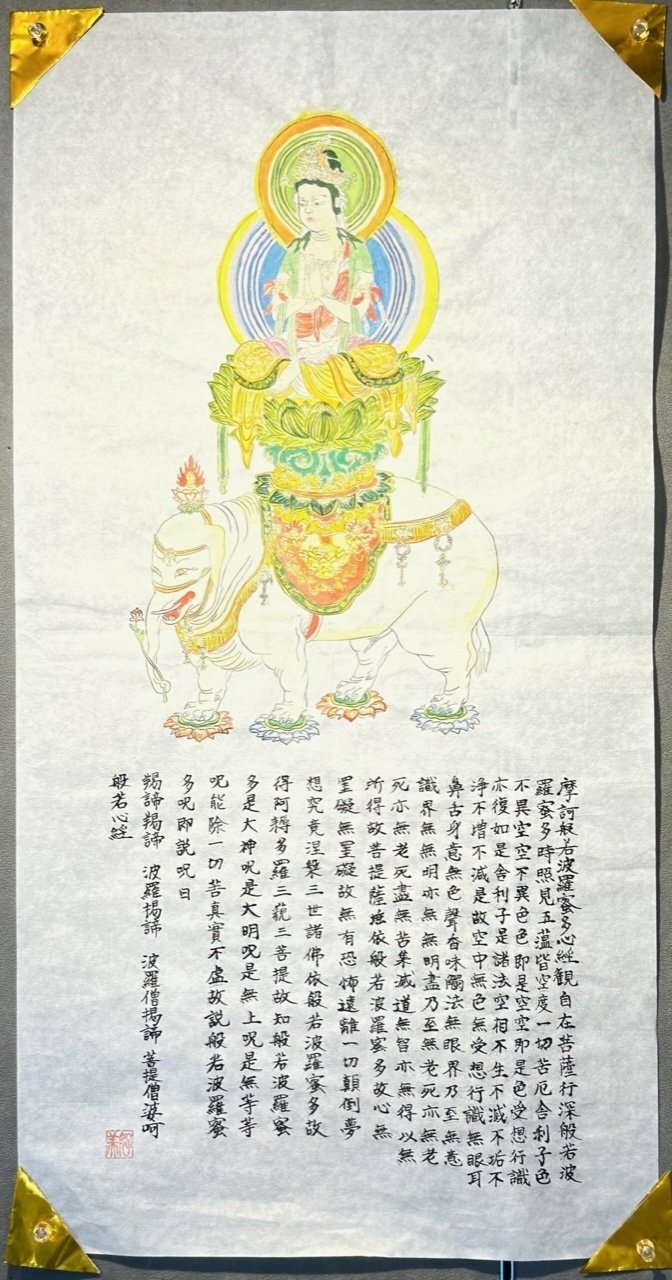 摩訶般若波羅蜜多心経観自在菩薩行深般若波
羅蜜多時照見五蘊皆空度一切苦厄舎利子色
不異空空不異色色即是空空即是色受想行識
亦復如是舎利子是諸法空相不生不滅不垢不
浄不増不減是故空中無色無受想行識無眼耳
鼻舌身意無色聲香味觸法無眼界乃至無意
識界無無明亦無無明盡乃至無老死亦無老
死亦無老死盡無苦集滅道無智亦無得以無
所得故菩提薩埵依般若波羅蜜多故心無
罣礙無罣礙故無有恐怖遠離一切顛倒夢
想究竟涅槃三世諸佛依般若波羅蜜多故
得阿耨多羅三藐三菩提故知般若波羅蜜
多是大神呪是大明呪是無上呪是無等等
呪能除一切苦真實不虚故説般若波羅蜜
多呪即説呪曰
羯諦羯諦 波羅揭諦 波羅僧揭諦 菩提僧婆呵
般若心経